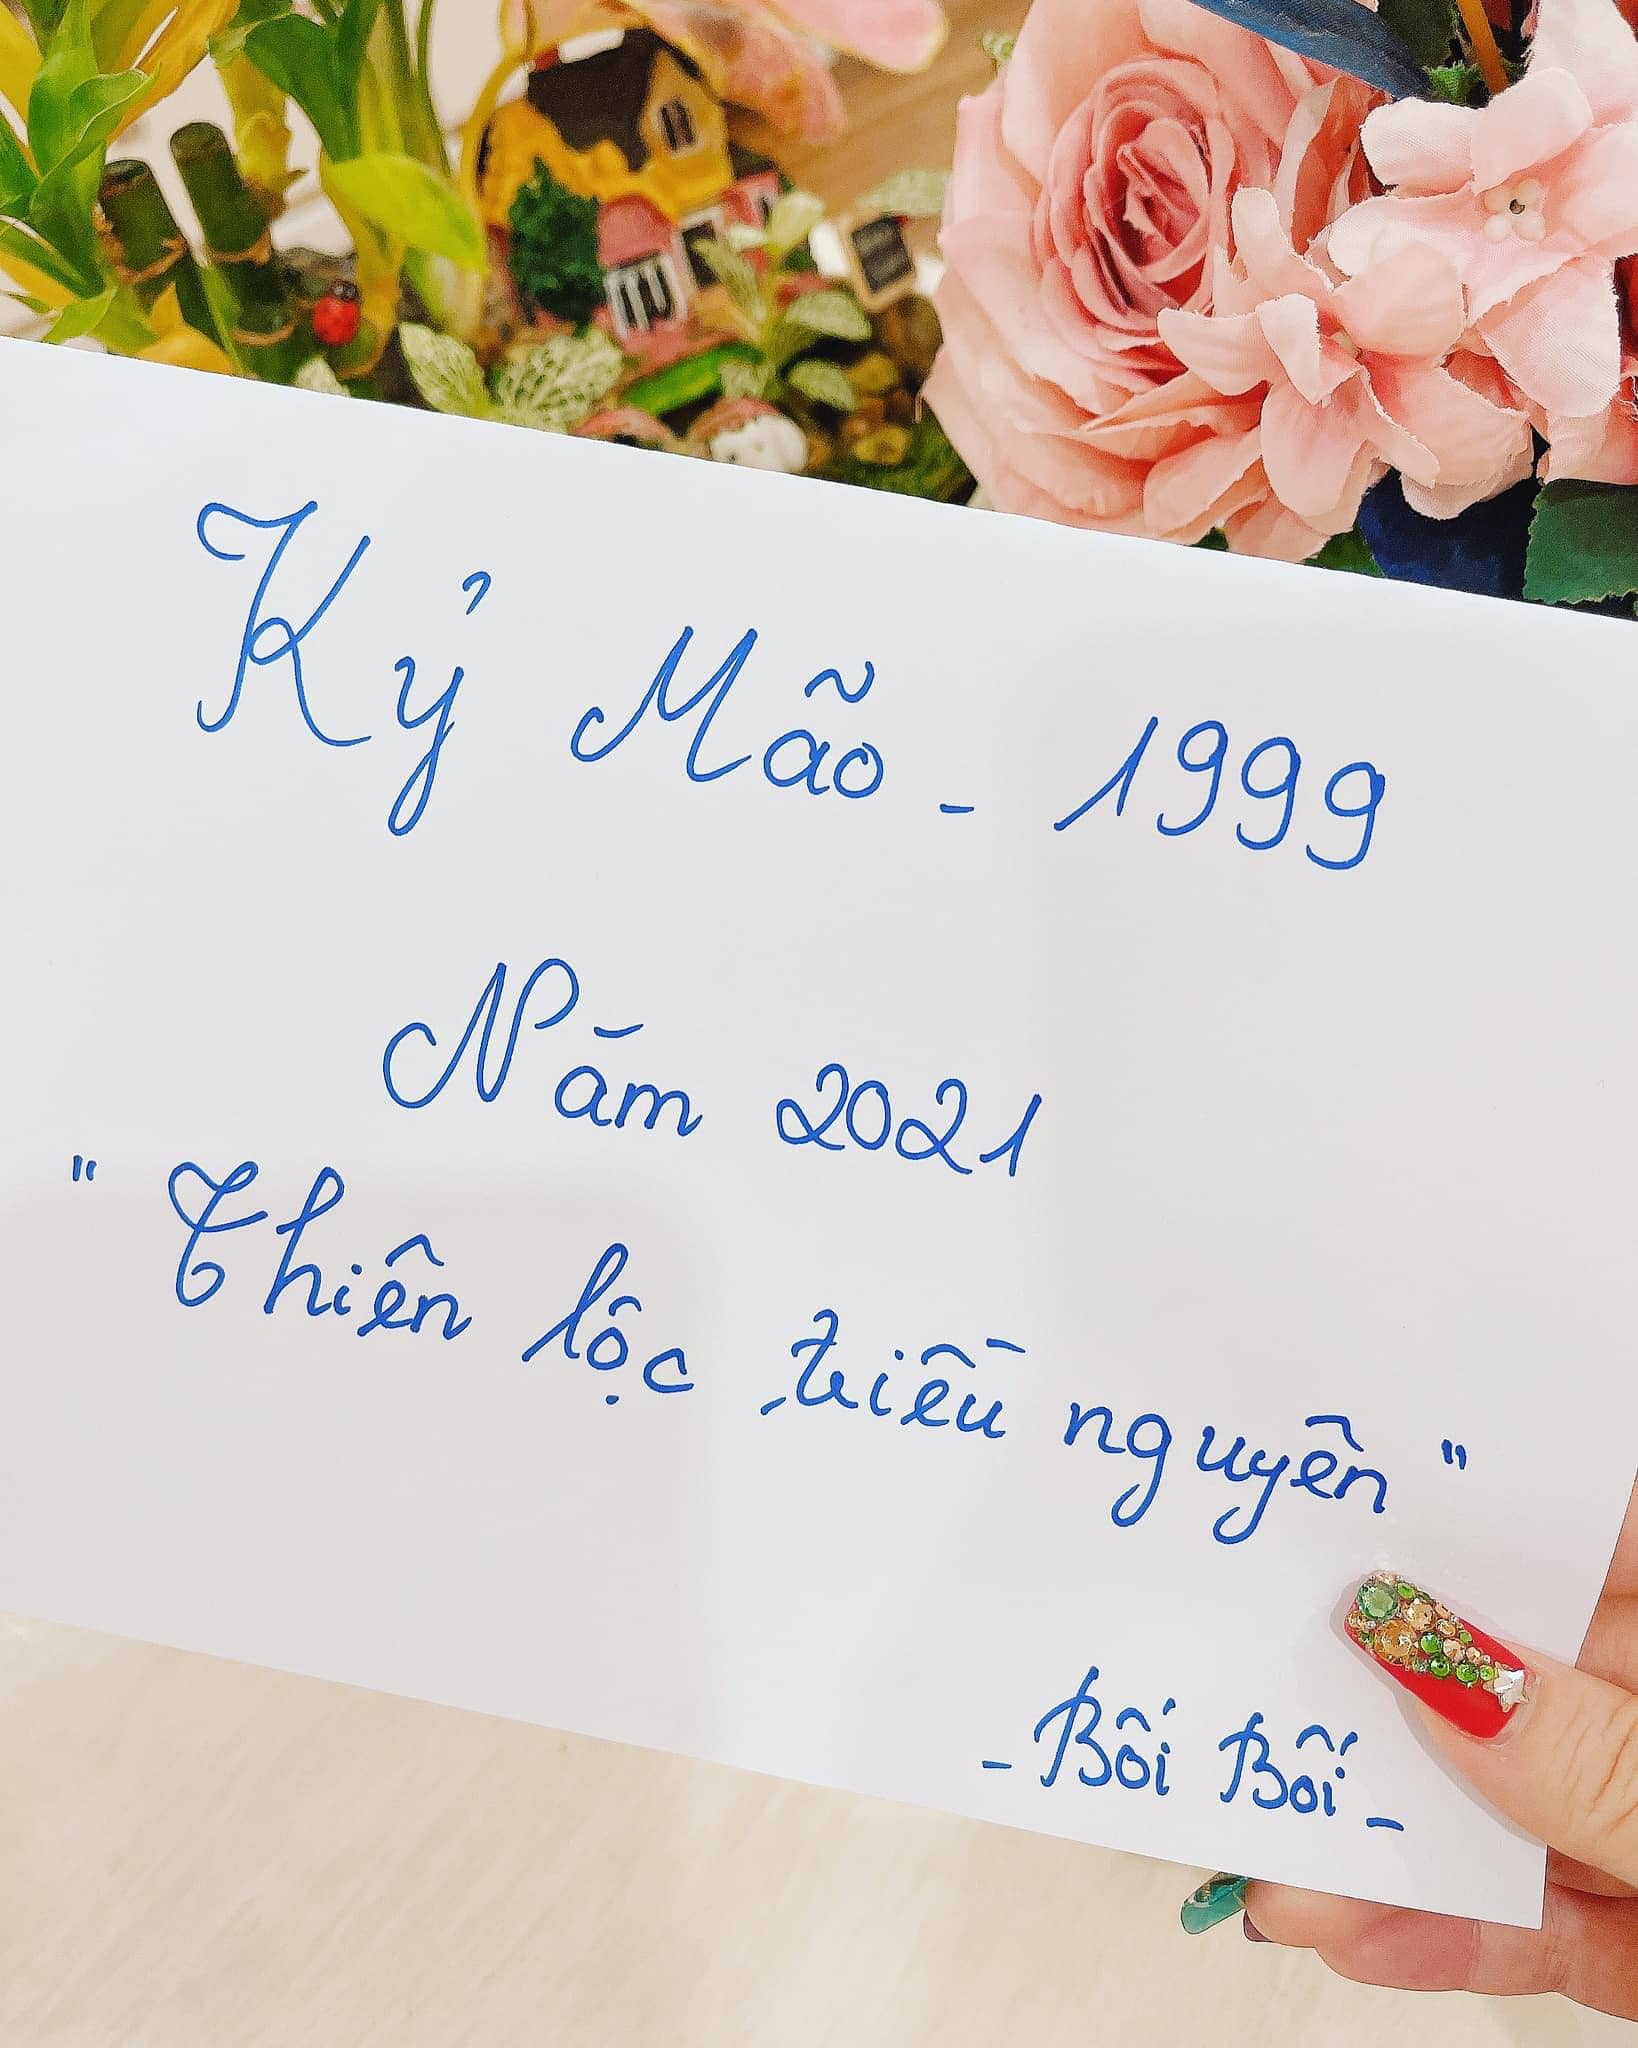 Kỷ Mão - 1999
Năm 2021
" Thiên lộc triều nguyên "
- Bối Bối -